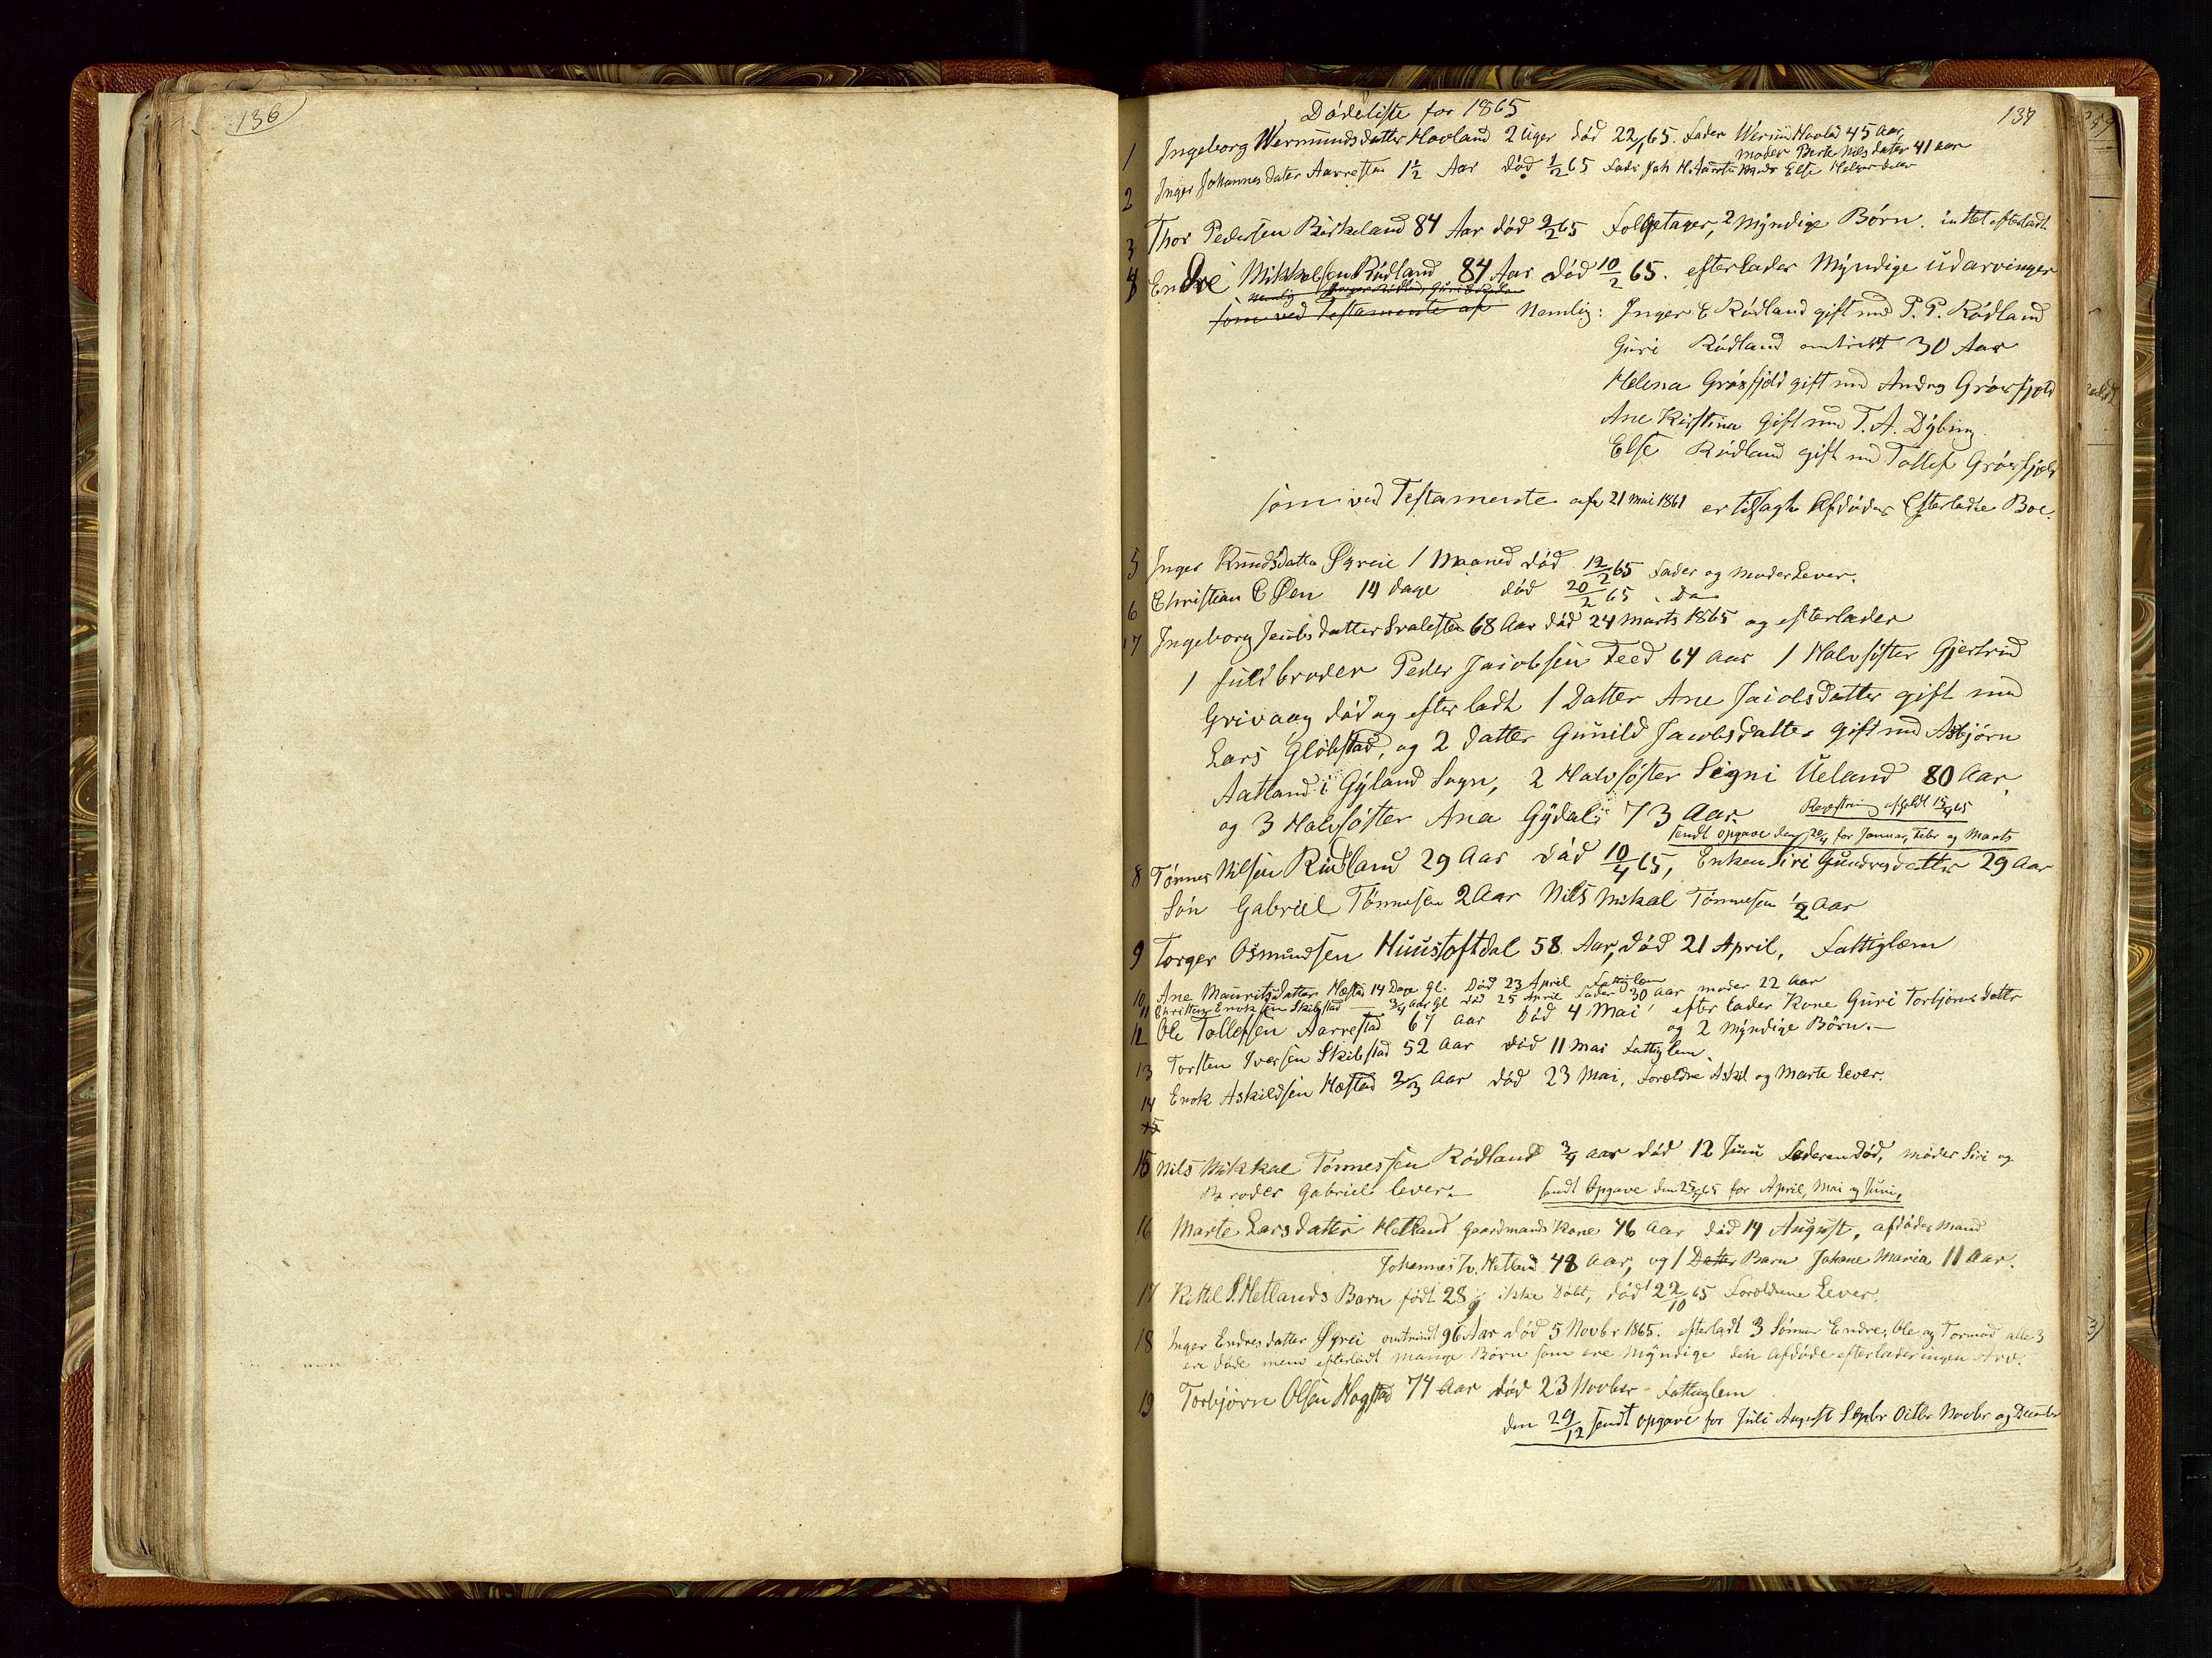 136
137
Dödeliste for 1865
1 Ingeborg Wermundsdatter Hovland 2 Uger död 22/1 65. Fader Hovland 45 Aar,
moder Berte Nilsdater 41 aar
2 Inger Johannesdater Aarrestad 1 1/2 Aar död 1/2 65 Fader Joh H. Aarrstad Moder Else
3 Thor Pedersen Birkeland 84 Aar död 9/2 65 Folgetager, 2 Myndige Börn. intet efterladt
4 Endre Mikkelsen Rödland 84 Aar död 10/2 65. efterlader Myndige udarvinger
nemlig Inger Rödland, Guri Rödland
som ved Testamente af Nemlig: Inger E Rödland gift med P. P. Rödland
Guri Rödland omtrent 30 Aar
Helena Grösfjeld gift med Andreas Grösfjeld
Ane Kirstina gift med T. A. Dybing
Else Rödland gift med Tollef Grösfjeld
som ved Testamente af 21 mai 1861 er tilsagt Afdödes Efterladte Boe.
5 Inger Knudsdatter Øyreie 1 Maaned död 12/2 65 Fader og moder Lever.
6 Christian E Øen 14 dage död 20/2 65 . Do
7 Ingeborg Jacobsdatter Svalestad 68 Aar död 24 Marts 1865 og efterlader
1 fuldbroder Peder Jacobsen Feed 64 aar 1 Halvsöster Gjertrud
Grivaag död og efterladt 1 Datter Ane Jacobsdatter gift med
Lars Glöbstad, og 2 datter Gunild Jacobsdatter gift med Asbjörn
Aatland i Gyland Sogn, 2 Halvsöster Signi Ueland 80 Aar,
og 3 Halvsöster Ana Gydal 73 Aar. Regestrering afholdt 15/4 65
sendt opgave den 20/4 for Januar, Febr og Marts
8 Tönnes Nilsen Rödland 29 Aar död 10/4 65, Enken Siri Gundersdatter 29 Aar
Sön Gabriel Tönnesen 2 Aar Nils Mikal Tönnesen 1/2 Aar
9 Torger Osmundsen Huustoftdal 58 Aar, död 21 April, Fattiglem
10 Ane Mauritsdatter Hæstad 14 Dage gl. Död 23 April Fattiglem
11 Christen Enoksen Skibstad 3/4 Aar gl död 25 April Fader 30 Aar moder 22 Aar
12 Ole Tollefsen Aarrestad 67 aar Död 4 Mai efterlader Kone Guri Torbjörnsdatter
og 2 Myndige Börn.—
13 Torsten Iversen Skibstad 52 Aar död 11 Mai Fattiglem.
14 Enok Askildsen Hæstad 2/3 Aar död 23 Mai, Forældre Askild og Marte Lever.
15
15 Nils Mikkal Tönnessen Rödland 3/4 aar död 12 Juni Faderen död, moder Siri og
Broder Gabriel lever.—
sendt Opgave den 25/7 65 for April, Mai og Juni,
16 Marte Larsdatter Hetland gaardmands Kone 46 Aar död 14 August, afdödes Mand
Johannes Tv. Hetland 48 Aar, og 1 Datter Barn Johane Maria 11 Aar.
17 Kittel S. Hetlands Barn födt 28/9 ikke Döbt, död 22/10 65 Forældrene Lever.
18 Inger Endresdatter Øyrei omtrendt 96 Aar död 5 Novbr 1865. efterladt 3 Sönner Endre, Ole og Tormod alle 3
ere döde men efterladt mange Börn som ere Myndige den afdöde efterlader ingen Arv.
19 Torbjörn Olsen Hogstad 74 Aar död 23 Novber – Fattiglem
den 29/12 sendt opgave for Juli August Sepbr Octbr Novbr og December